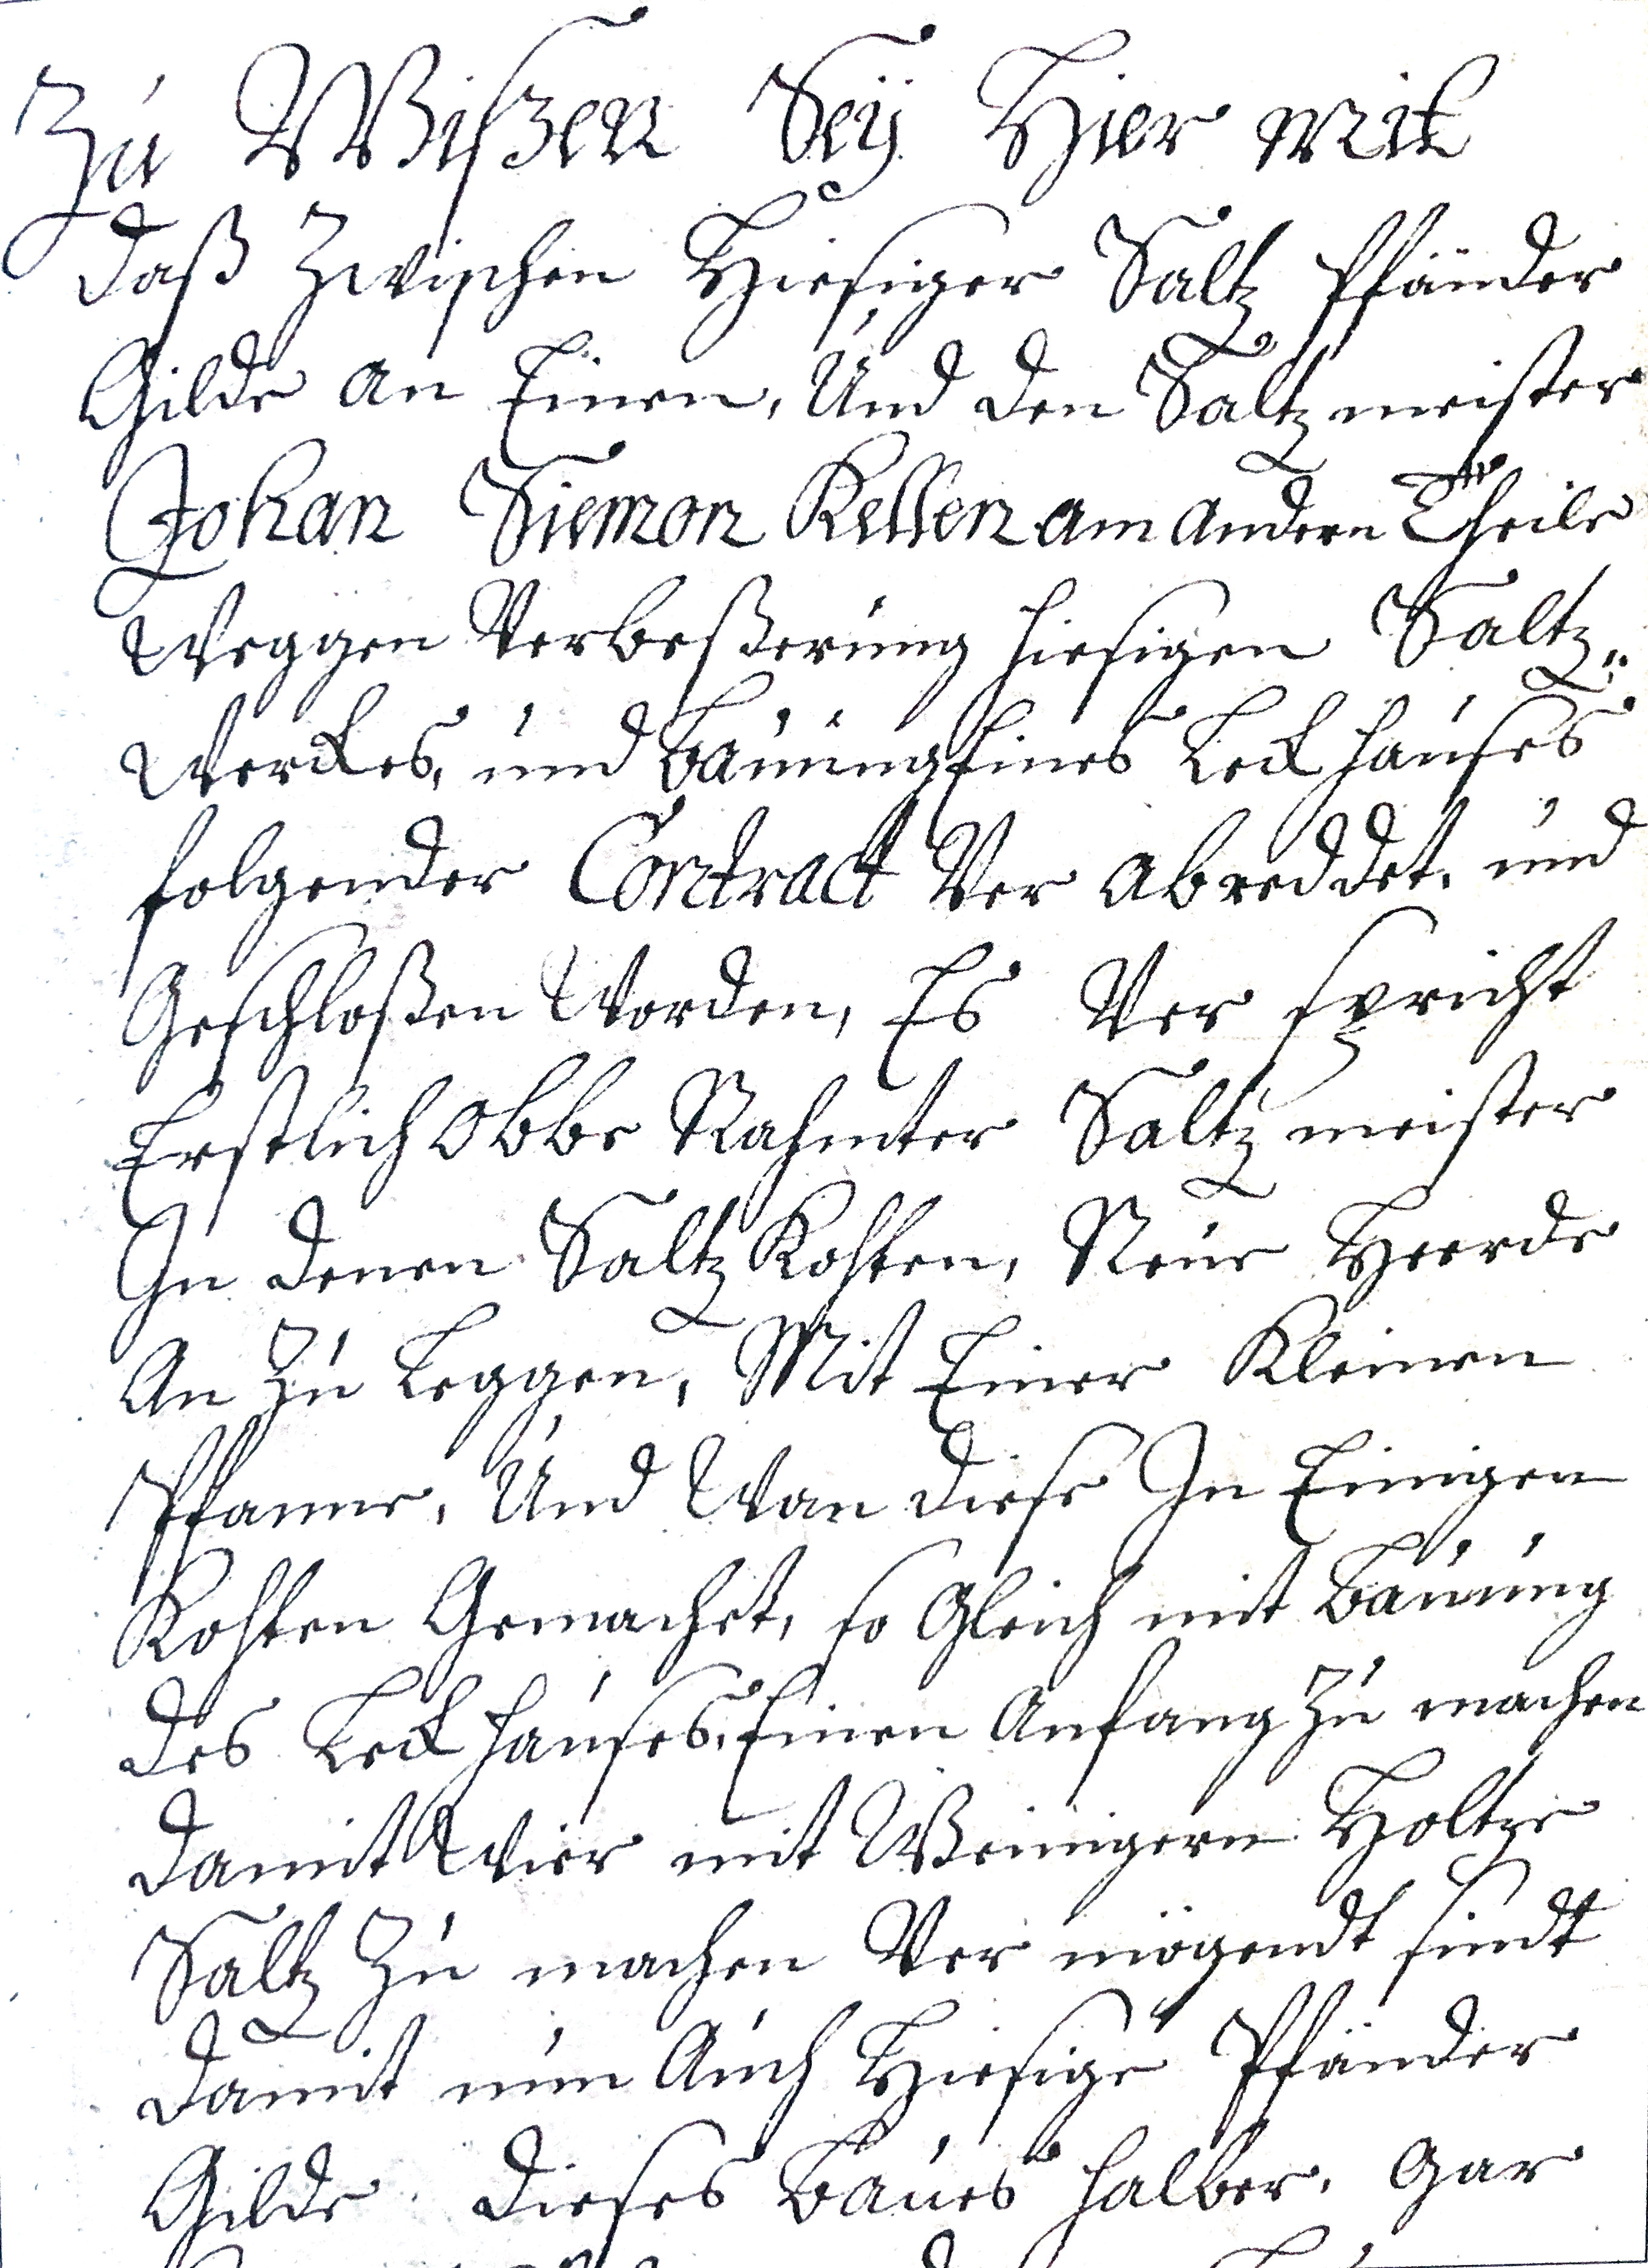 Zu Wißen Seÿ Hier mit
daß Zwischen Hiesiger Saltz Pfänder
Gilde an Einen, Und den Saltz meister
Johan Siemon Kellen am andern Theile
Weggen Verbeßerung hiesigen Saltz„
Werckes, und bauung Eines Leck hauses
folgender Contract Ver abreddet, und
Geschloßen Worden, Es Ver spricht
Erstlich Obbe Nahmter Saltz meister
In denen Saltz Kohten, Neue Heerde
An Zu Leggen, Mit Einer Kleinen
Pfanne, Und Wan diese In Einigen
Kohten Gemachet, so Gleich mit Bauung
des Leck hauses, Einen Anfang Zu machen
damit Wier mit Weinigern Holtze
Saltz Zu machen Ver mögendt sindt
damit nun Auch Hiesige Pfänder
Gilde dieses Baues halber, Gar